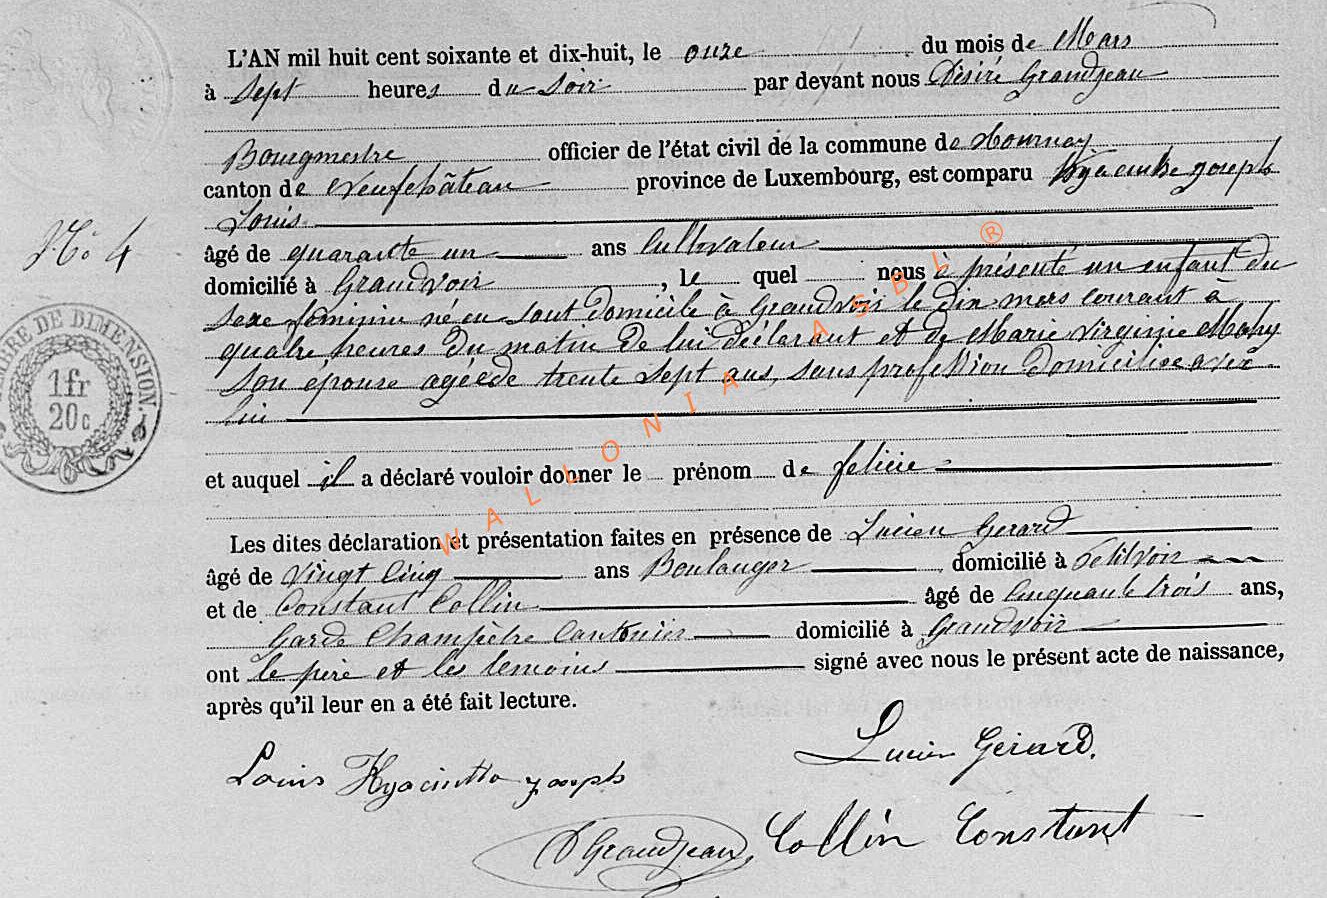 L'AN mil huit cent soixante et dix-huit, le onze du mois de Mars
à Sept heures du Soir par devant nous Désiré Grandjean
Bourgmestre officier de l'état civil de la commune de Tournay
canton de Neufchâteau province de Luxembourg, est comparu Hyacinthe Joseph
Louis
N° 4
âgé de quarante un ans Cultivateur
domicilié à Grandvoir, le quel nous à présenté un enfant du
sexe féminin né en sont domicile à Grandvoir le dix mars courant à
quatre heures du matin de lui déclarant et de Marie Virginie Mahy
son épouse agéede trente sept ans, sans profession domiciliée avec
lui
TIMBRE DE DIMENSION.
1fr
20c
et auquel il a déclaré vouloir donner le prénom de felicie
Les dites déclaration et présentation faites en présence de Lucien Gerard
âgé de Vingt Cinq ans Boulanger, domicilié à Petitvoir
et de Constant Collin âgé de Cinquante trois ans,
Garde Champètre Cantonier domicilié à Grandvoir
ont le père et les temoins signé avec nous le présent acte de naissance,
après qu'il leur en a été fait lecture.
Louis Hyacinthe Joseph
Lucien Gérard.
DGrandjean,
Collin Constant
WALLONIA ASBL ®